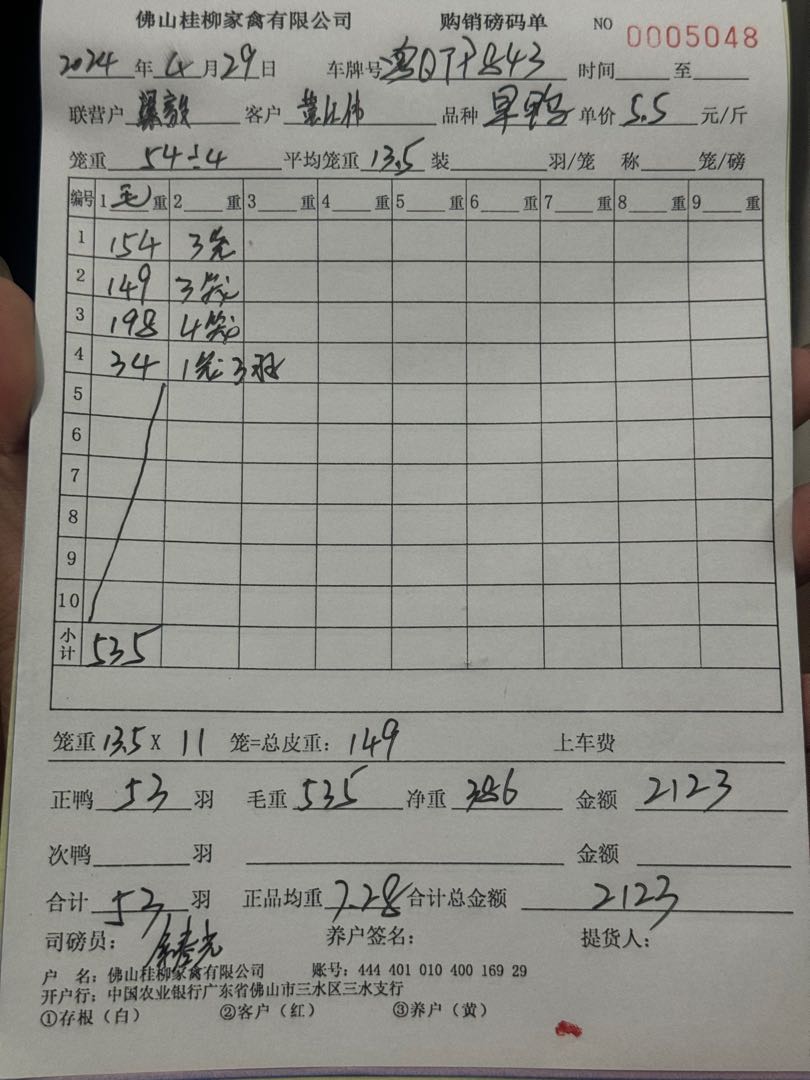 佛山桂柳家禽有限公司 购销磅码单 NO 0005048
2024年4月29日 车牌号 843 时间 至
联营户 客户 品种 单价 5.5 元/斤
笼重 54÷4 平均笼重 13.5 装 羽/笼 称 笼/磅
编号 1 毛 重 2 重 3 重 4 重 5 重 6 重 7 重 8 重 9 重
1 154 3笼
2 149 3笼
3 198 4笼
4 34 1笼3羽
5
6
7
8
9
10
小计 535
笼重 13.5 X 11 笼=总皮重: 149 上车费
正鸭 53 羽 毛重 535 净重 386 金额 2123
次鸭 羽 金额
合计 53 羽 正品均重 7.28 合计总金额 2123
司磅员: 养户签名: 提货人:
户 名: 佛山桂柳家禽有限公司 账号: 444 401 010 400 169 29
开户行: 中国农业银行广东省佛山市三水区三水支行
①存根(白) ②客户(红) ③养户(黄)